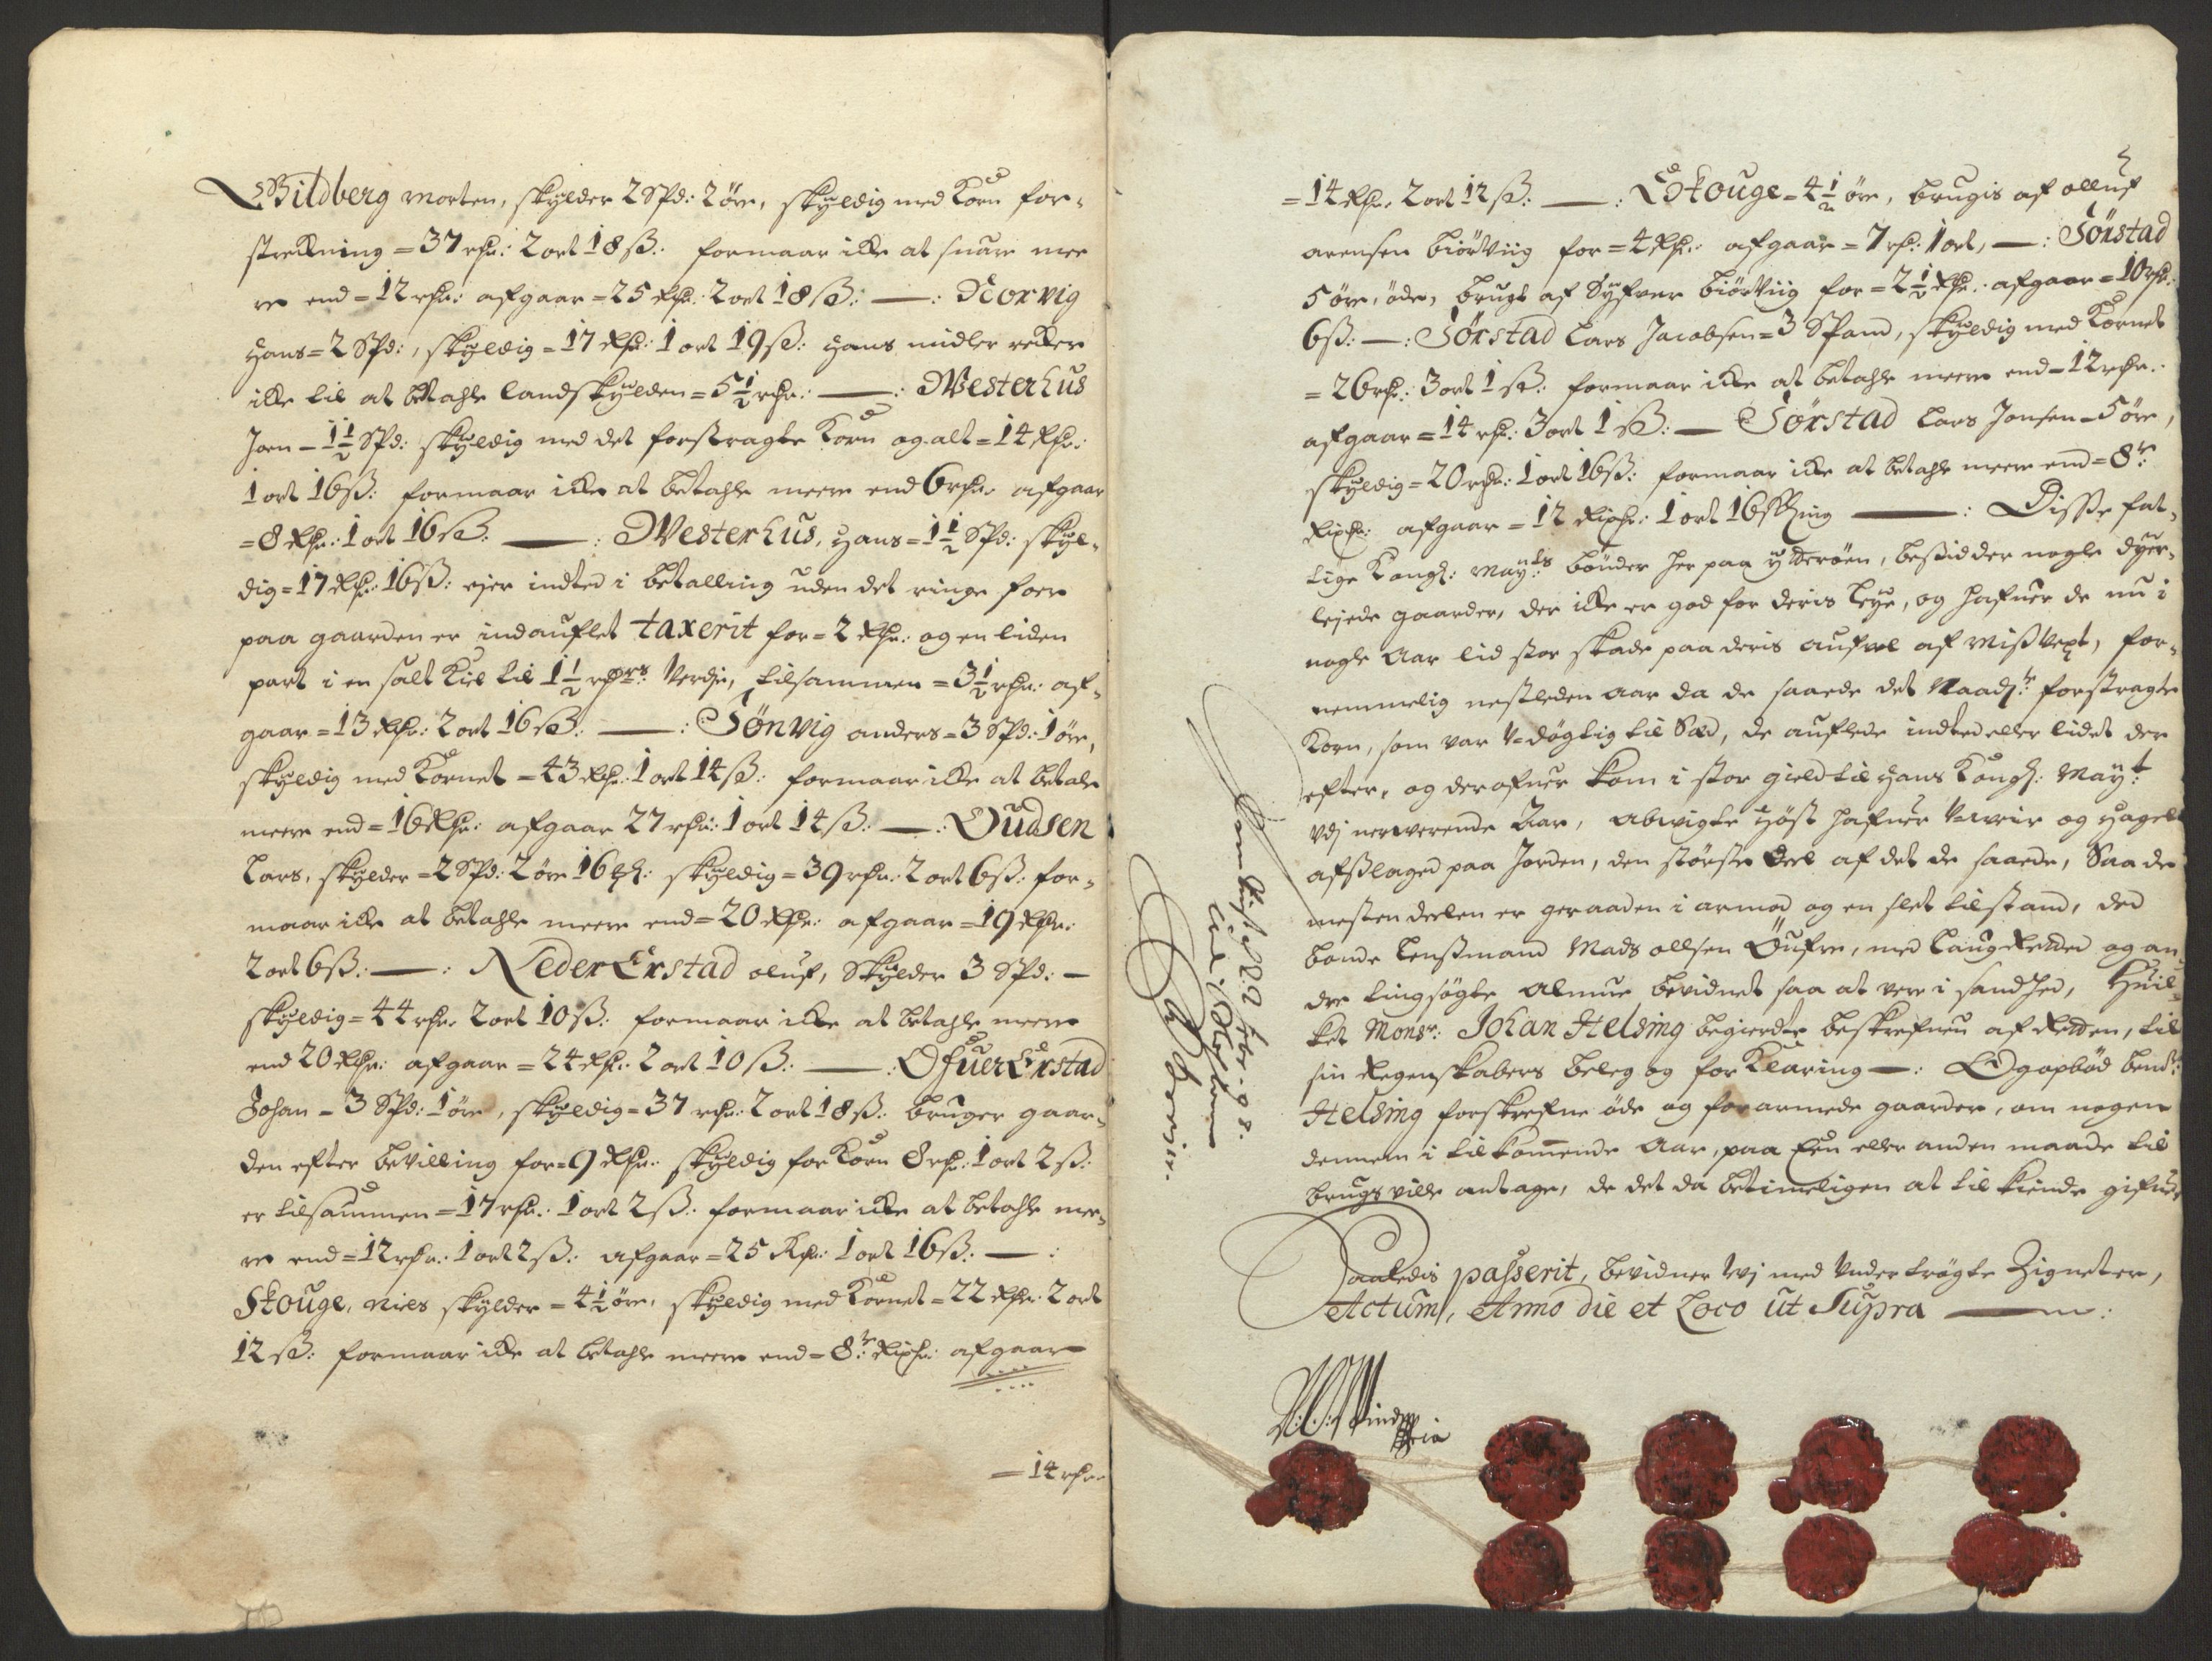 Wildberg Morten, skylder 2 Spd: 2 öre, skyldig med Korn for-
streckning = 37 rdr: 2 ort 18 ß: formaar icke at suare mee
re end = 12 rdr: afgaar = 25 Rdr: 2 ort 18 ß: —: Norvig
Hans = 2 Spd:, skyldig = 17 Rdr: 1 ort 19 ß: Hans midler recker
icke til at betahle Landskylden = 5½ rdr: —: Westerhus
Joen - 1½ Spd: skyldig med det forstragte Korn og alt = 14 Rdr:
1 ort 16 ß: formaar icke at betahle meere end 6 rdr: afgaar
= 8 Rdr: 1 ort 16 ß: —: Westerhus, Hans = 1½ Spd: skyl-
dig = 17 Rdr: 16 ß: ejer indted i betalling uden det ringe foer
paa gaarden er indauflet taxerit for = 2 Rdr: og en liden
part i en salt Kiel til 1½ rdrs: Verdj, tilsammen = 3½ rdr: af-
gaar = 13 Rdr: 2 ort 16 ß: —: Sönvig anders = 3 Spd: 1 öre,
skyldig med Kornet = 43 Rdr: 1 ort 14 ß: formaar icke at betale
meere end = 16 Rdr: afgaar 27 rdr: 1 ort 14 ß: —: Oudsen
Lars, skylder = 2 Spd: 2 öre 16 skyldig = 39 rdr: 2 ort 6 ß: for-
maar icke at betahle meere end = 20 Rdr: afgaar = 19 Rdr:
2 ort 6 ß: —: Neder Erstad oluf, skylder 3 Spd: —
skyldig = 44 rdr: 2 ort 10 ß: formaar icke at betahle meere
end 20 Rdr: afgaar = 24 Rdr: 2 ort 10 ß: —: Ofuer Erstad
Johan = 3 Spd: 1 öre, skyldig = 37 rdr: 2 ort 18 ß: bruger gaar-
den efter bevilling for = 9 Rdr: skyldig for Korn 8 rdr: 1 ort 2 ß:
er tilsammen = 17 rdr: 1 ort 2 ß: formaar icke at betahle mee-
re end = 12 rdr: 1 ort 2 ß: afgaar = 25 Rdr: 1 ort 16 ß: —:
Houge, Niels skylder = 4½ öre, skyldig med Kornet = 22 Rdr: 2 ort
12 ß: formaar icke at betahle meere end = 8te Rixdr: afgaar
= 14 rdr:
= 14 Rdr: 2 ort 12 ß: —: Houge = 4½ öre, brugis af olluf
arensen biörViig for = 4 Rdr: afgaar = 7 rdr: 1 ort, —: Sörstad
5 öre, öde, brugt af Syfver biörViig for = 2½ Rdr: afgaar = 10 rdr:
6 ß: —: Sörstad Lars Jacobsen = 3 Spand, skyldig med Kornet
= 26 rdr: 3 ort 1 ß: formaar icke at betahle meere end = 12 rdr:
afgaar = 14 rdr: 3 ort 1 ß: — Sörstad Lars Jonsen = 5 öre,
skyldig = 20 rdr: 1 ort 16 ß: formaar icke at betahle meere end = 8te
Rixdr: afgaar = 12 Rixdr: 1 ort 16 skilling —: Disse fat-
tige Kongl: Mayts bönder her paa ytterøen, besidder nogle dyer-
lejede gaarder, der icke er god for deris leye, og hafuer de nu i
nogle Aar lid stor skade paa deris aufvel af Misvext, for-
nemmelig nestleden aar da de saaede det Naadste forstragte
Korn, som var V-dögtig til Sæd, de auflede indted eller lidet der
efter, og derofuer kom i stor gield til Hans Kongl: Mayt:
Vdj nerverende Aar, abvigte Höst hafuer V-veir og Hagel
afslaged paa Jorden, den störste deel af det de saaede, Saa de
mesten deelen er geraaden i armod og en slet tilstand, det
bonde Lensmand Mads ollsen Öufre, med Laug Retten og an-
dre tingsögte Almue bevidnet saa at vere i sandhed, Huil-
ket Monsr: Johan Helsing begierdte beskrefuen af Retten, til
sin Regenskabers beleg og forKlaring —: Og opböd bemte:
Helsing forskrefne öde og forarmede gaarder, om nogen
dennem i tilkommende Aar, paa Een eller anden maade til
brugs ville antage, de det da betimeligen at tilkiende gifue
Saaledis passerit, bevidner Wj med Undertrögte Zigneter,
Actum, Anno die et Loco ut Supra —: